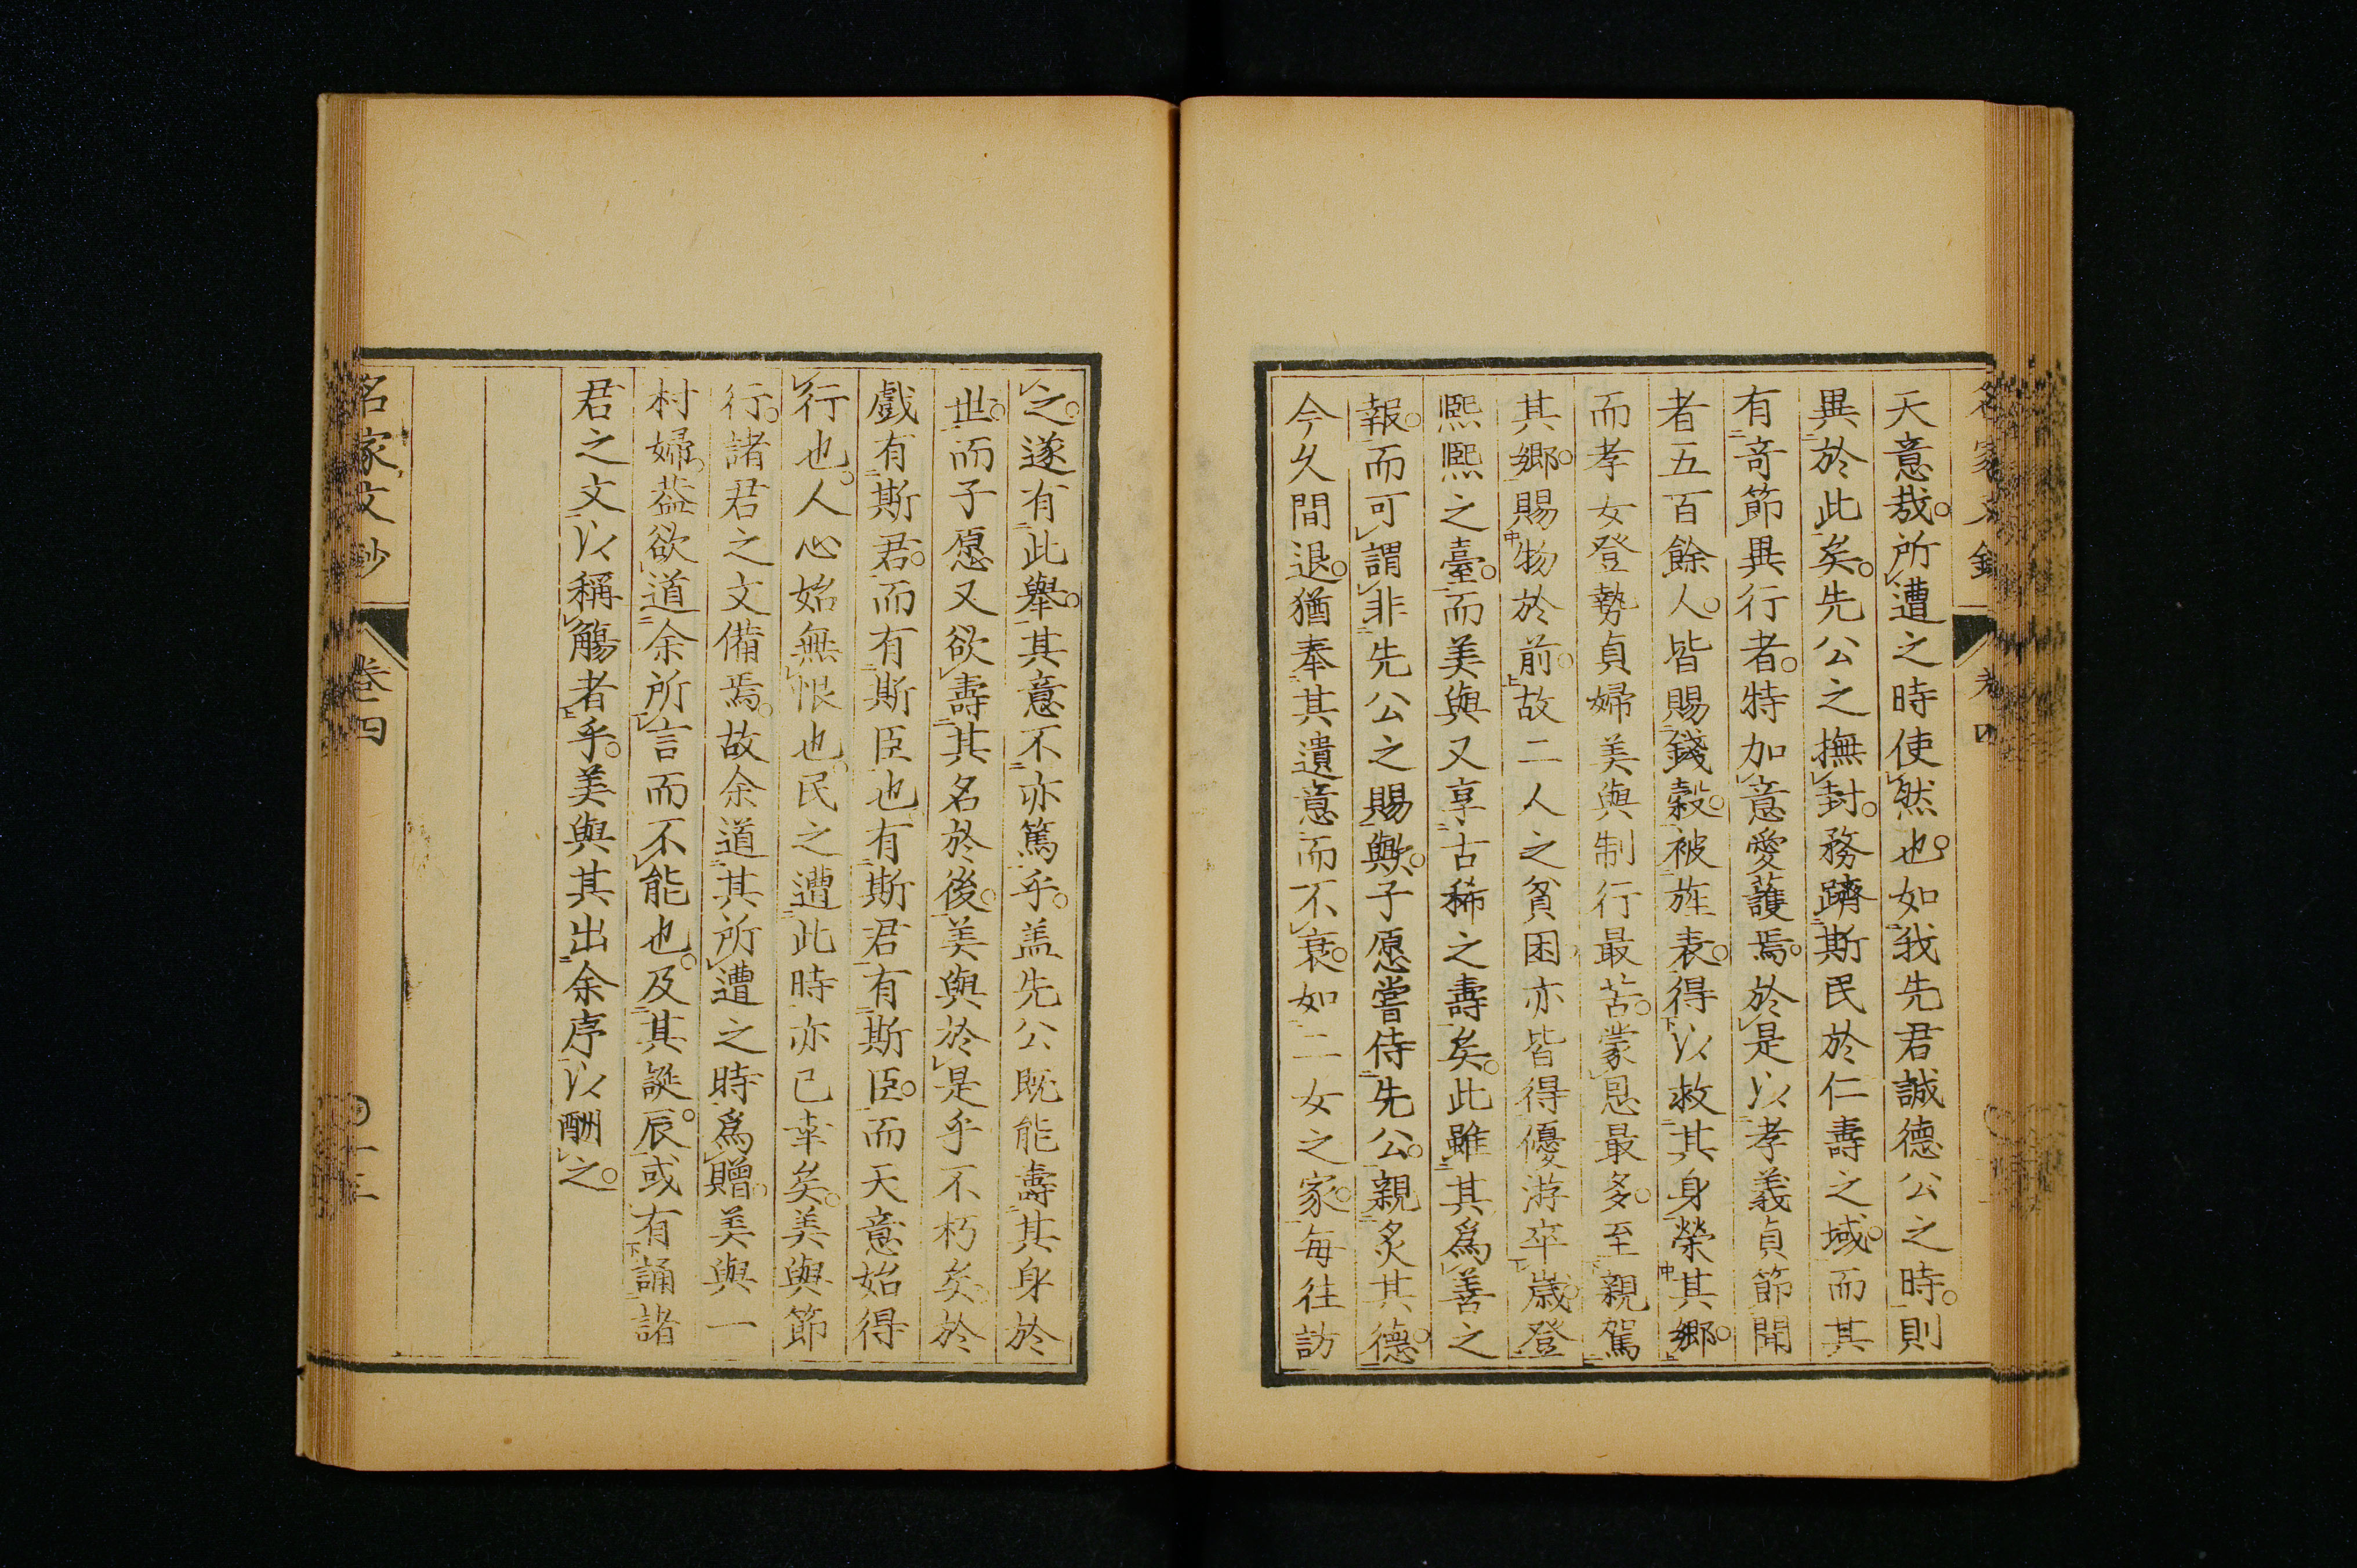 天意哉。所遭之時使然也。如我先君誠德公之時。則
異於此矣。先公之撫封。務躋斯民於仁壽之域。而其
有奇節異行者。特加意愛護焉。於是以孝義貞節聞
者五百餘人。皆賜錢穀。被旌表。得以救其身榮其鄉。
而孝女登勢貞婦美與制行最苦。蒙恩最多。至親駕
其鄉。賜物於前。故二人之貧困亦皆得優游卒歲。登
熙熙之臺。而美與又享古稀之壽矣。此雖其爲善之
報。而可謂非先公之賜歟。子愿嘗侍先公。親炙其德。
今久間退。猶奉其遺意而不衰。如二女之家。每往訪
之。遂有此舉。其意不亦篤乎。盖先公既能壽其身於
世。而子愿又欲壽其名於後。美與於是乎不朽矣。於
戲有斯君。而有斯臣也。有斯君有斯臣。而天意始得
行也。人心始無恨也。民之遭此時亦已幸矣。美與節
行。諸君之文備焉。故余道其所遭之時爲贈。美與一
村婦。葢欲道余所言而不能也。及其誕辰。或有誦諸
君之文以稱觴者乎。美與其出余序以酬之。
名家文抄
卷四